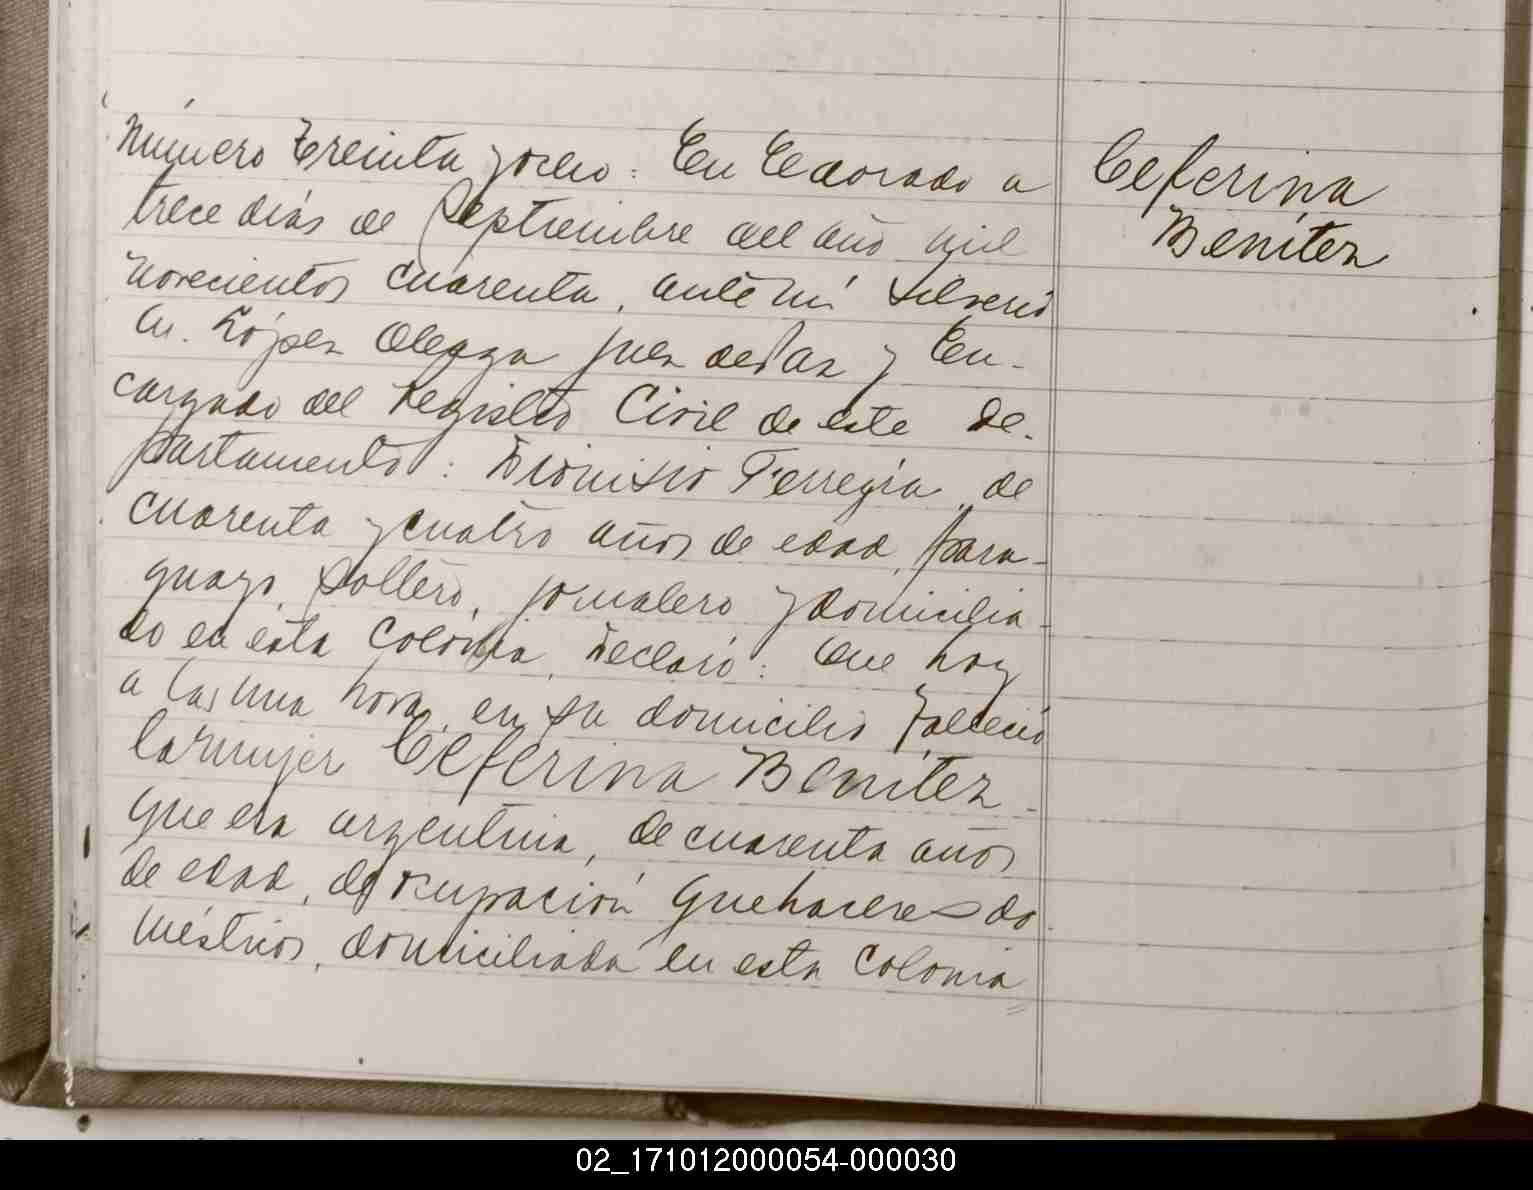 Número Treinta y ocho: En Eldorado a
trece dias de Septiembre del año mil
novecientos cuarenta, ante mí Silverio
López Oleaga Juez de Paz y En-
cargado del Registro Civil de este De-
partamento: Dionisio Ferreyra, de
cuarenta y cuatro años de edad, para-
guayo, soltero, jornalero y domicilia-
do en esta Colonia, declaró: Que hoy
a las una hora, en su domicilio falleció
la mujer Ceferina Benítez
que era argentina, de cuarenta años
de edad, de ocupación quehaceres do-
mésticos, domiciliada en esta Colonia
Ceferina
Benítez
02_171012000054-000030